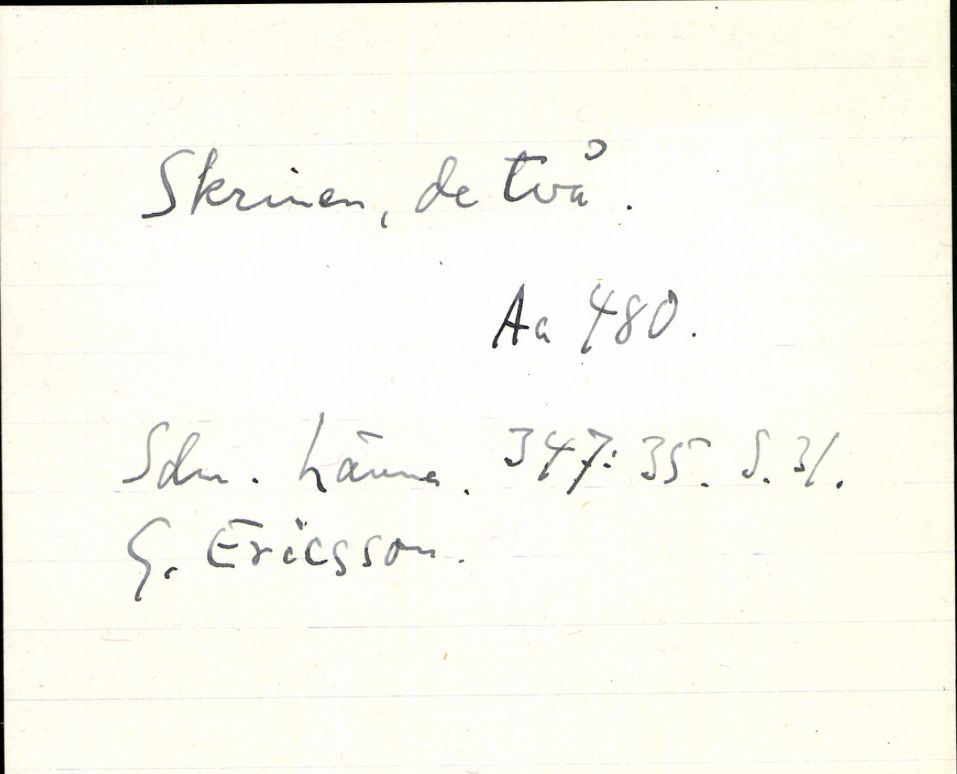 Skrinen, de två.
Aa 480.
Sdm. Länna. 347:35. S. 31.
G. Ericsson.